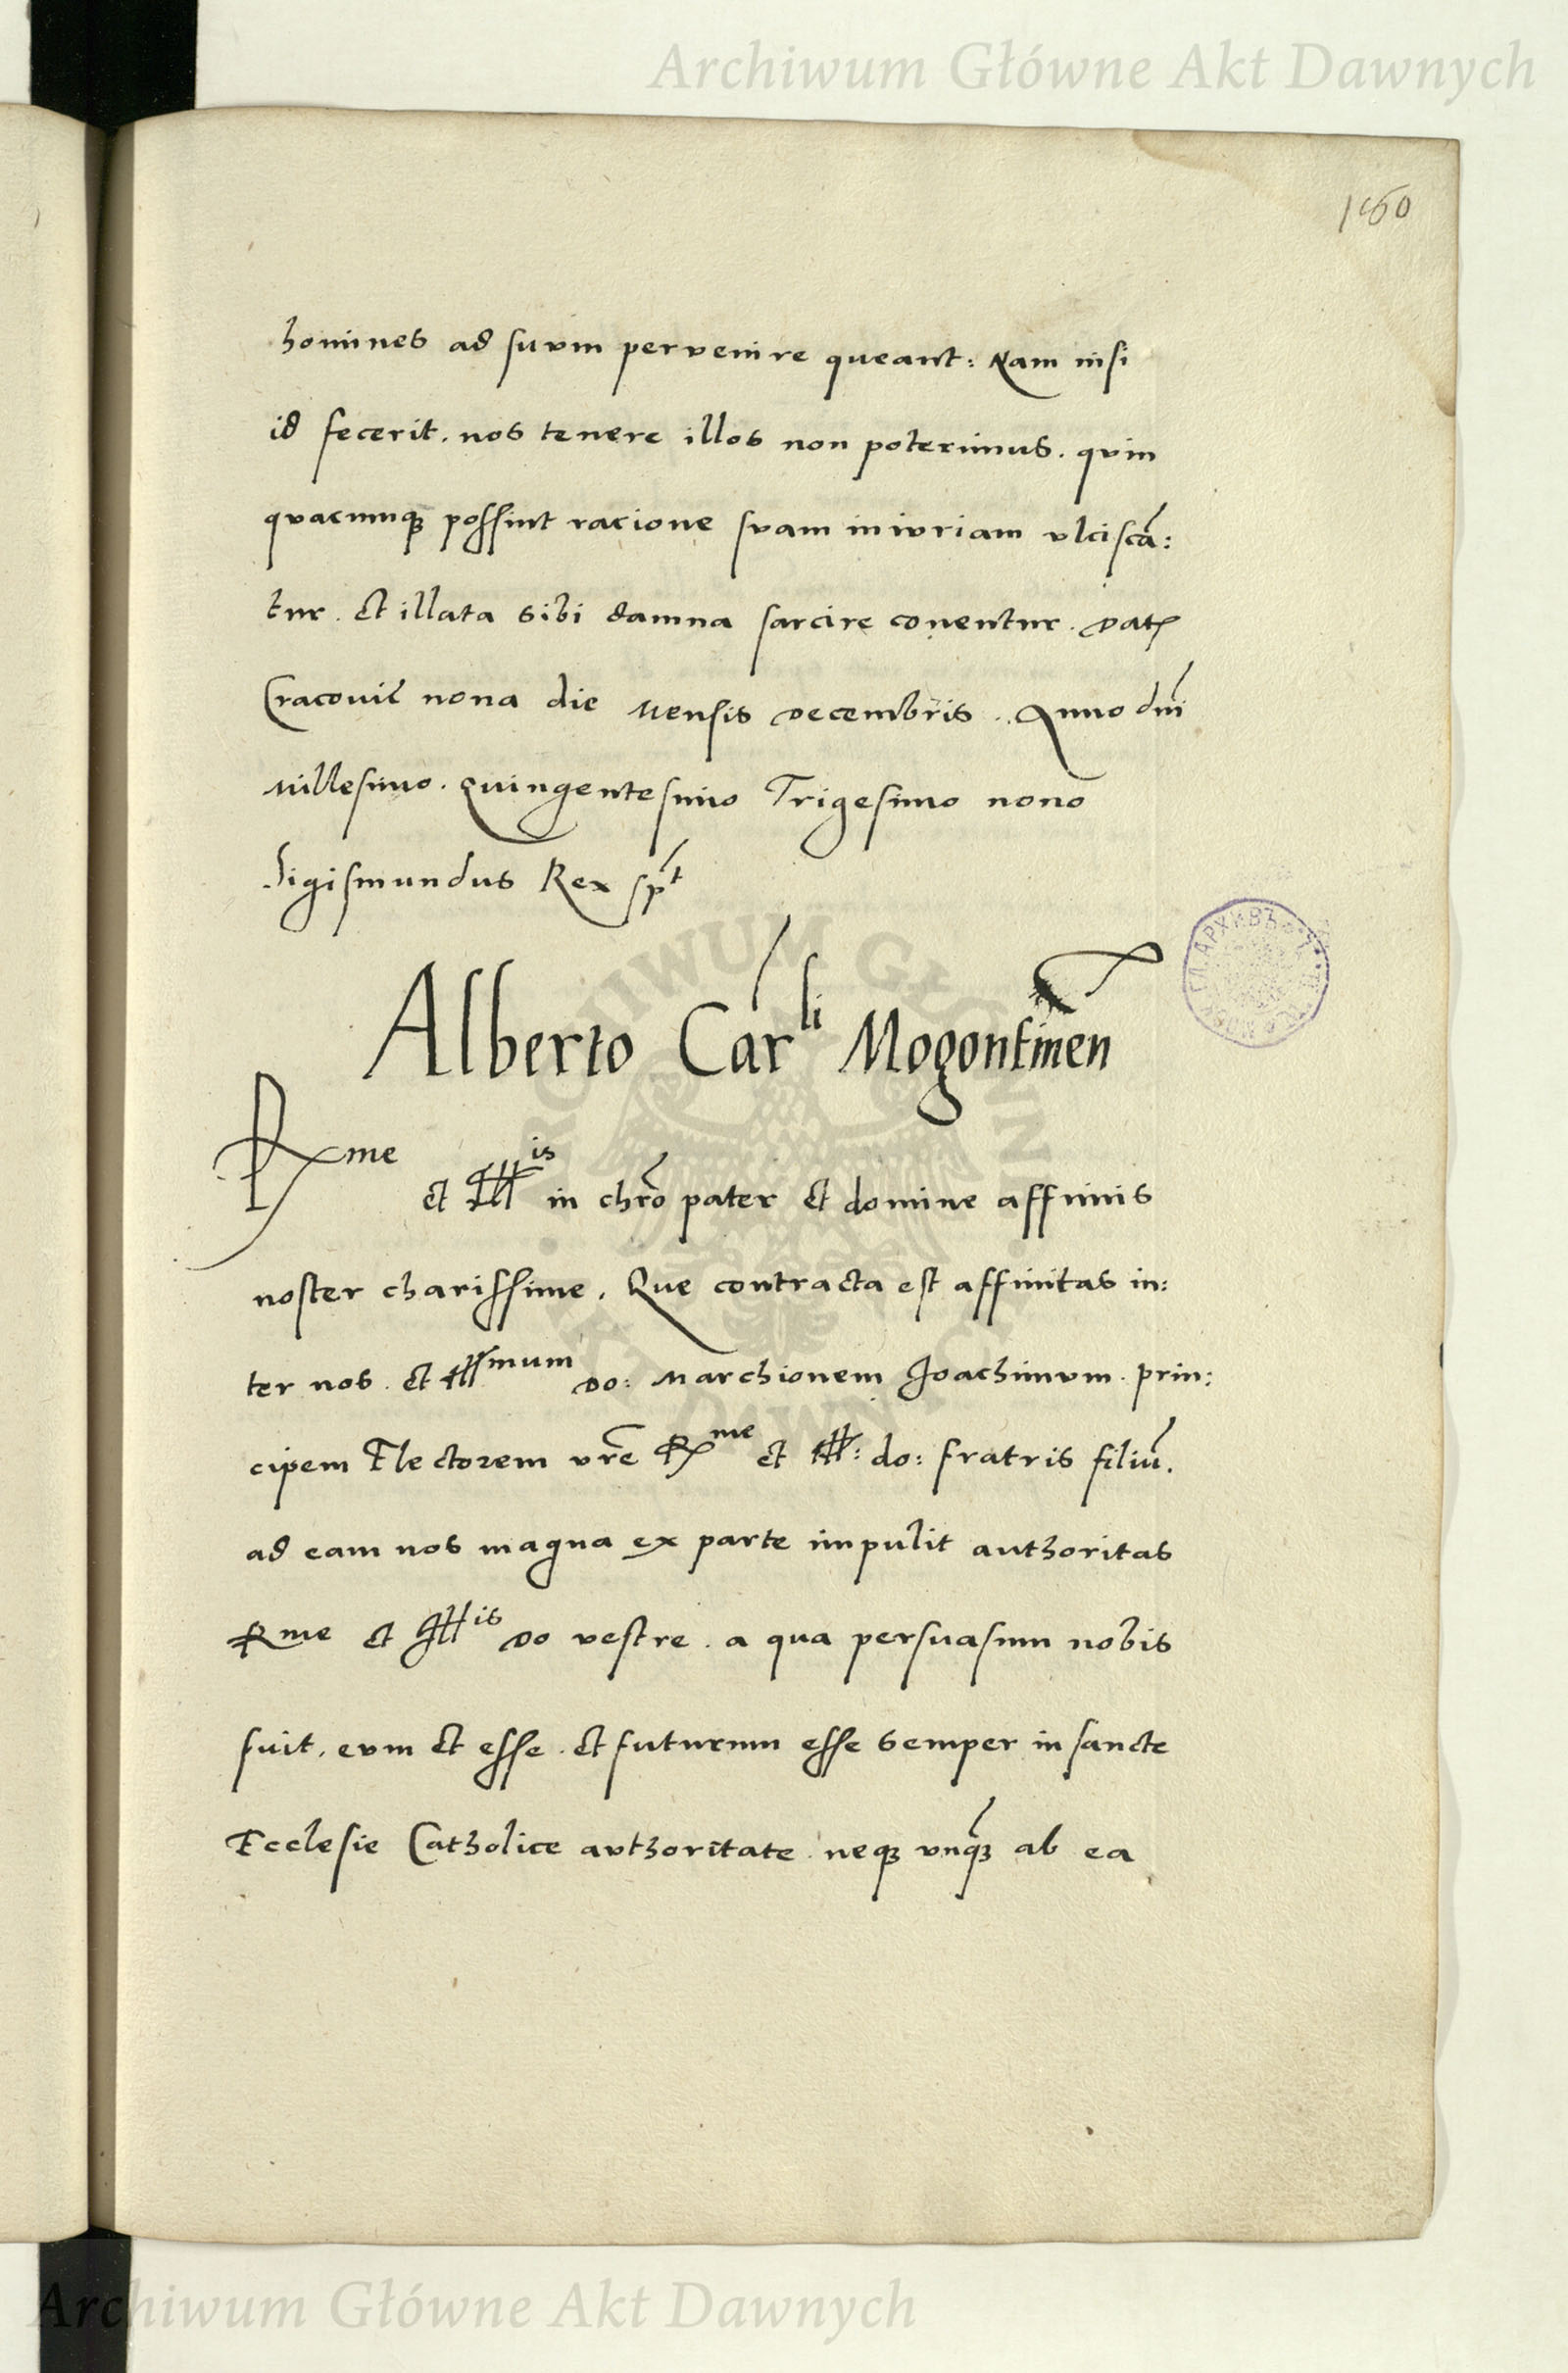 Archiwum Główne Akt Dawnych
160
homines ad suum pervenire queant: Nam nisi
id fecerit. nos tenere illos non poterimus. quin
quacunqȝ possint racione suam iniuriam ulciscā:
tur. Et illata sibi damna sarcire conentur. Datꝭ
Cracovie nona die Mensis Decembris. Anno dnī
Millesimo. Quingentesimo Trigesimo nono
Sigismundus Rex spt
Alberto Carli Mogontinen̄
Rme
et Illis in chro pater et domine affinis
noster charissime. Que contracta est affinitas in:
ter nos. et Illmum Do: Marchionem Joachimum. prin:
cipem Electorem vre Rme et Ill: do: fratris filiū.
ad eam nos magna ex parte impulit authoritas
Rme et Illis Do vestre. a qua persuasum nobis
fuit. eum et esse. et futurum esse semper in sancte
Ecclesie Catholice authoritate. neqȝ unqȝ ab ea
Archiwum Główne Akt Dawnych